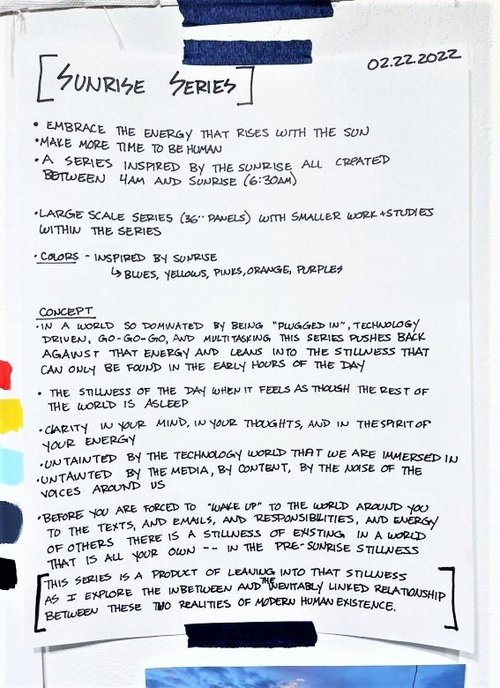 02.22.2022
[SUNRISE SERIES]
• EMBRACE THE ENERGY THAT RISES WITH THE SUN
• MAKE MORE TIME TO BE HUMAN
• A SERIES INSPIRED BY THE SUNRISE ALL CREATED
BETWEEN 4AM AND SUNRISE (6:30AM)
• LARGE SCALE SERIES (36" PANELS) WITH SMALLER WORK + STUDIES
WITHIN THE SERIES
• COLORS - INSPIRED BY SUNRISE
↳ BLUES, YELLOWS, PINKS, ORANGE, PURPLES
CONCEPT
• IN A WORLD SO DOMINATED BY BEING "PLUGGED IN", TECHNOLOGY
DRIVEN, GO-GO-GO, AND MULTITASKING THIS SERIES PUSHES BACK
AGAINST THAT ENERGY AND LEANS INTO THE STILLNESS THAT
CAN ONLY BE FOUND IN THE EARLY HOURS OF THE DAY
• THE STILLNESS OF THE DAY WHEN IT FEELS AS THOUGH THE REST OF
THE WORLD IS ASLEEP
• CLARITY IN YOUR MIND, IN YOUR THOUGHTS, AND IN THE SPIRIT OF
YOUR ENERGY
• UNTAINTED BY THE TECHNOLOGY WORLD THAT WE ARE IMMERSED IN
• UNTAINTED BY THE MEDIA, BY CONTENT, BY THE NOISE OF THE
VOICES AROUND US
• BEFORE YOU ARE FORCED TO "WAKE UP" TO THE WORLD AROUND YOU
TO THE TEXTS, AND EMAILS, AND RESPONSIBILITIES, AND ENERGY
OF OTHERS THERE IS A STILLNESS OF EXISTING IN A WORLD
THAT IS ALL YOUR OWN -- IN THE PRE-SUNRISE STILLNESS
[THIS SERIES IS A PRODUCT OF LEANING INTO THAT STILLNESS
AS I EXPLORE THE INBETWEEN AND THE INEVITABLY LINKED RELATIONSHIP
BETWEEN THESE TWO REALITIES OF MODERN HUMAN EXISTENCE.]